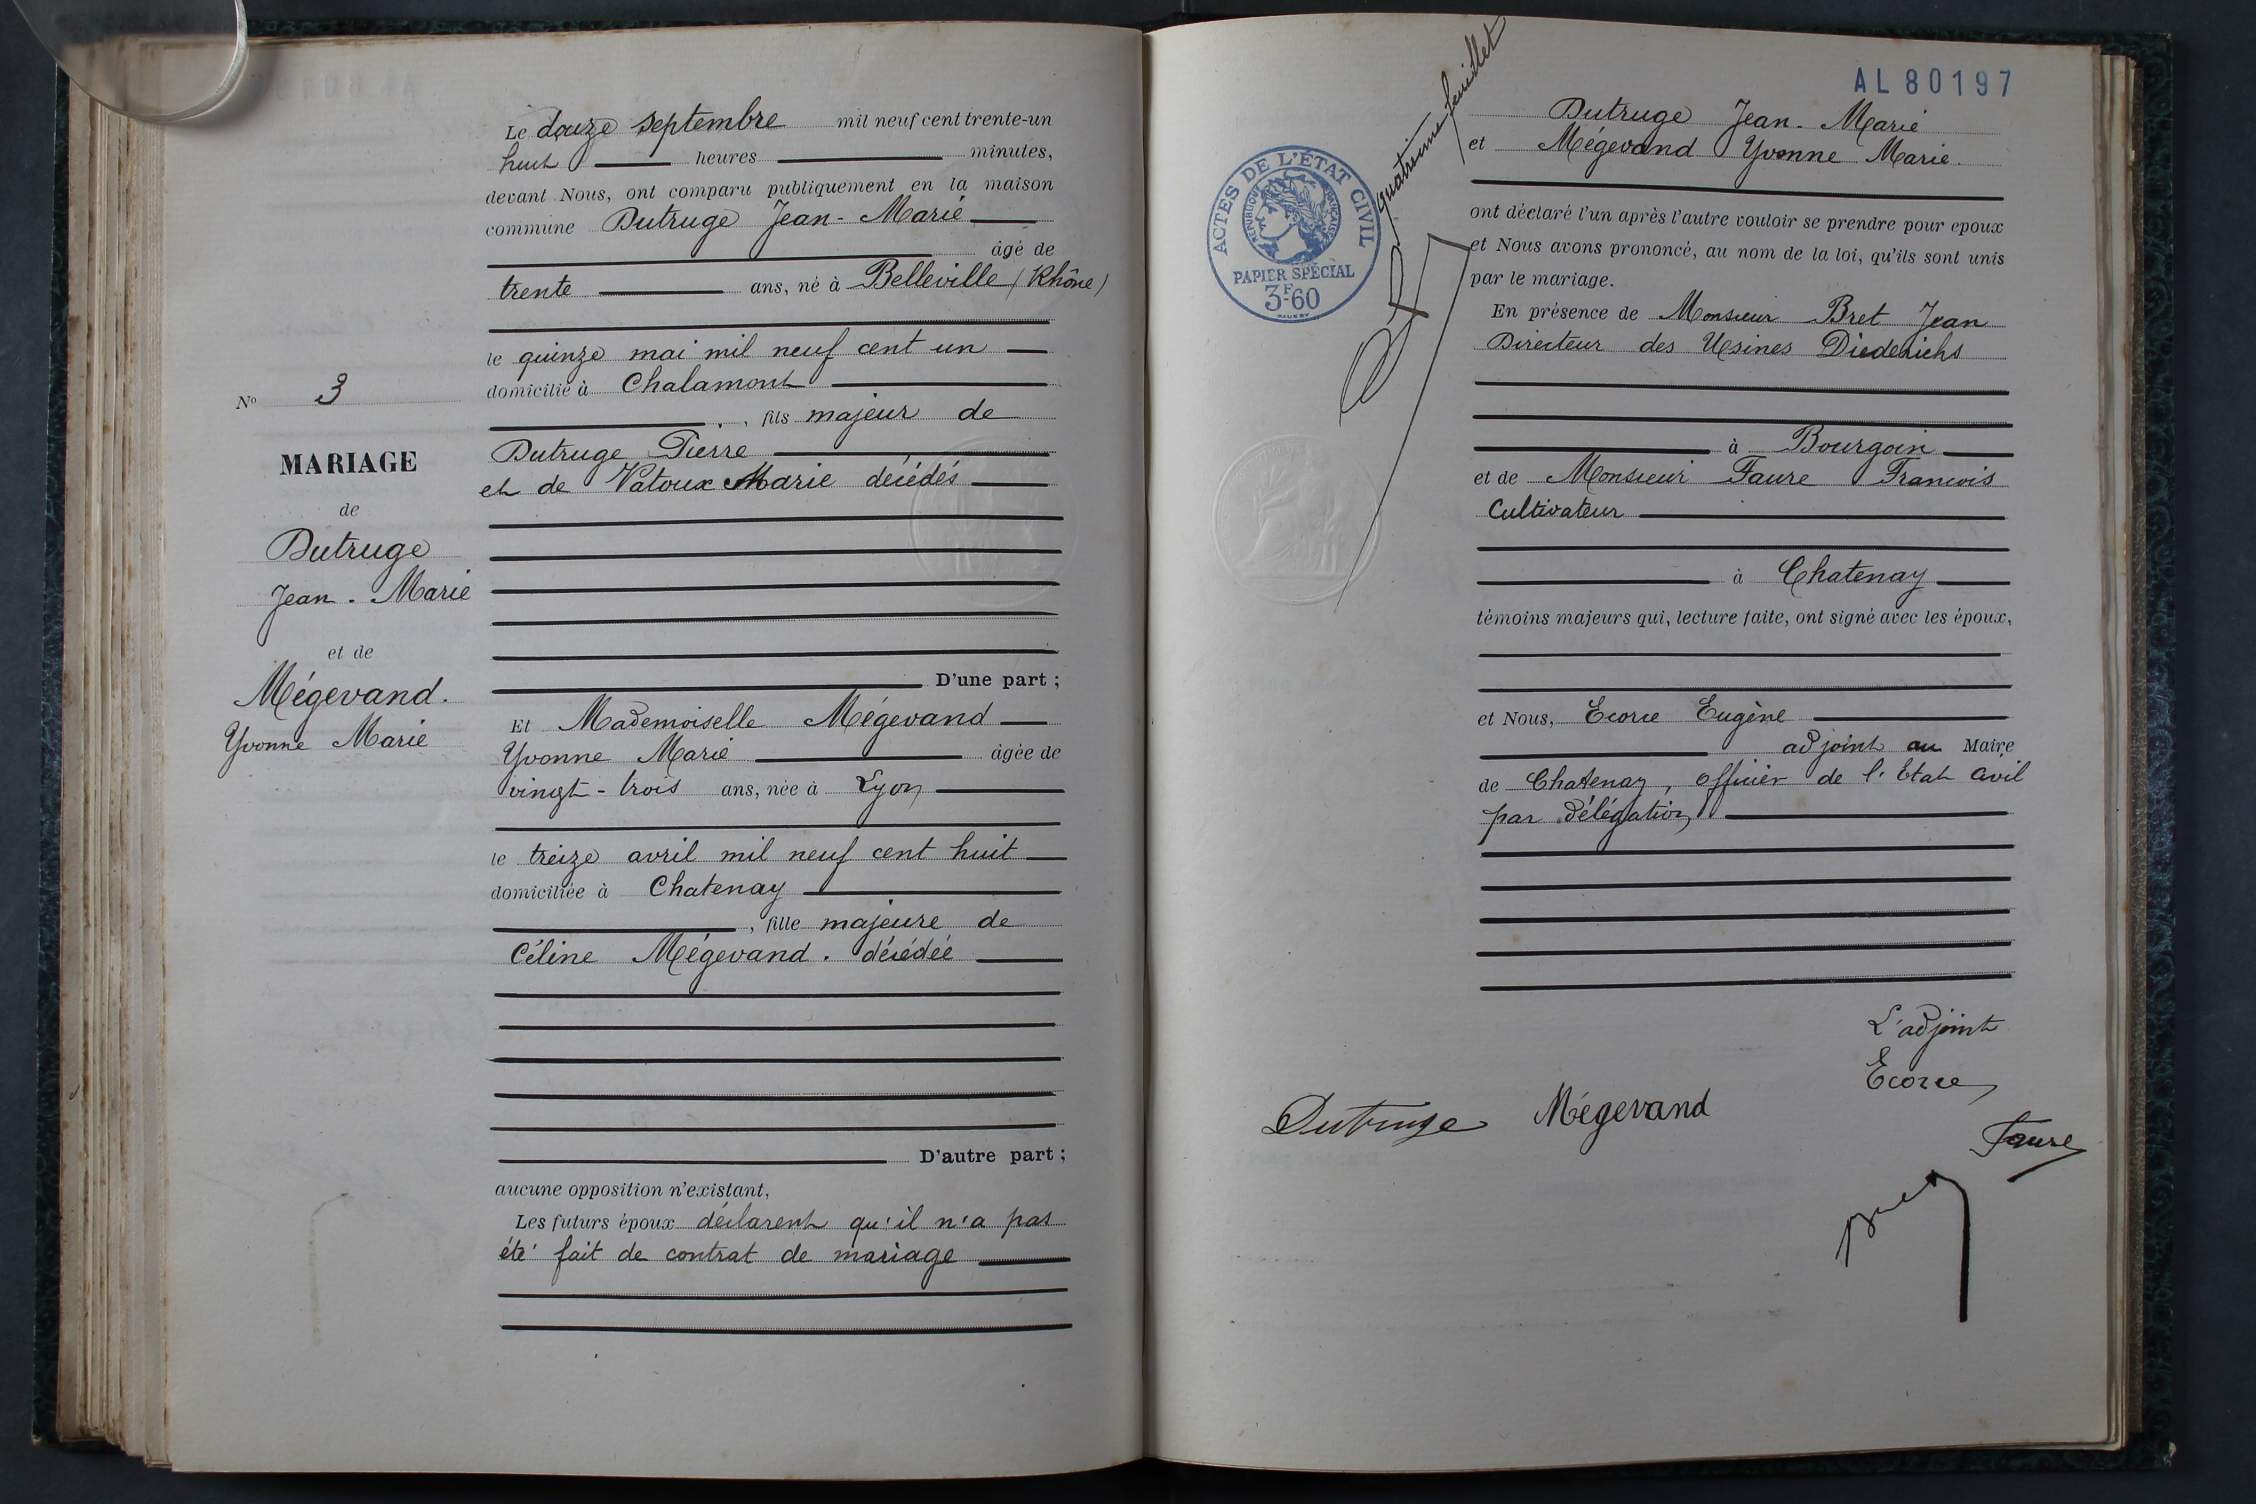 N° 3
MARIAGE
de
Dutruge
Jean - Marie
et de
Mégevand.
Yvonne Marie
Le douze septembre mil neuf cent trente-un
huit heures minutes,
devant Nous, ont comparu publiquement en la maison
commune Dutruge Jean - Marie
âgé de
trente ans, né à Belleville (Rhône)
le quinze mai mil neuf cent un
domicilié à Chalamont
, fils majeur de
Dutruge Pierre
et de Vatoux Marie décédés
D'une part ;
Et Mademoiselle Mégevand
Yvonne Marie âgée de
vingt-trois ans, née à Lyon
le treize avril mil neuf cent huit
domiciliée à Chatenay
, fille majeure de
Céline Mégevand . décédée
D'autre part ;
aucune opposition n'existant,
Les futurs époux déclarent qu'il n'a pas
été fait de contrat de mariage
quatrième feuillet
AL 80197
ACTES DE L'ÉTAT CIVIL
RÉPUBLIQUE FRANÇAISE
PAPIER SPÉCIAL
3F60
Dutruge Jean - Marie
et Mégevand Yvonne Marie.
ont déclaré l'un après l'autre vouloir se prendre pour epoux
et Nous avons prononcé, au nom de la loi, qu'ils sont unis
par le mariage.
En présence de Monsieur Bret Jean
Directeur des Usines Diederichs
à Bourgoin
et de Monsieur Faure Francois
Cultivateur
à Chatenay
témoins majeurs qui, lecture faite, ont signé avec les époux,
et Nous, Ecorce Eugène
adjoint au Maire
de Chatenay, officier de l'Etat Civil
par délégation
L'adjoint
Ecorce
Dutruge Mégevand
Faure
Bret